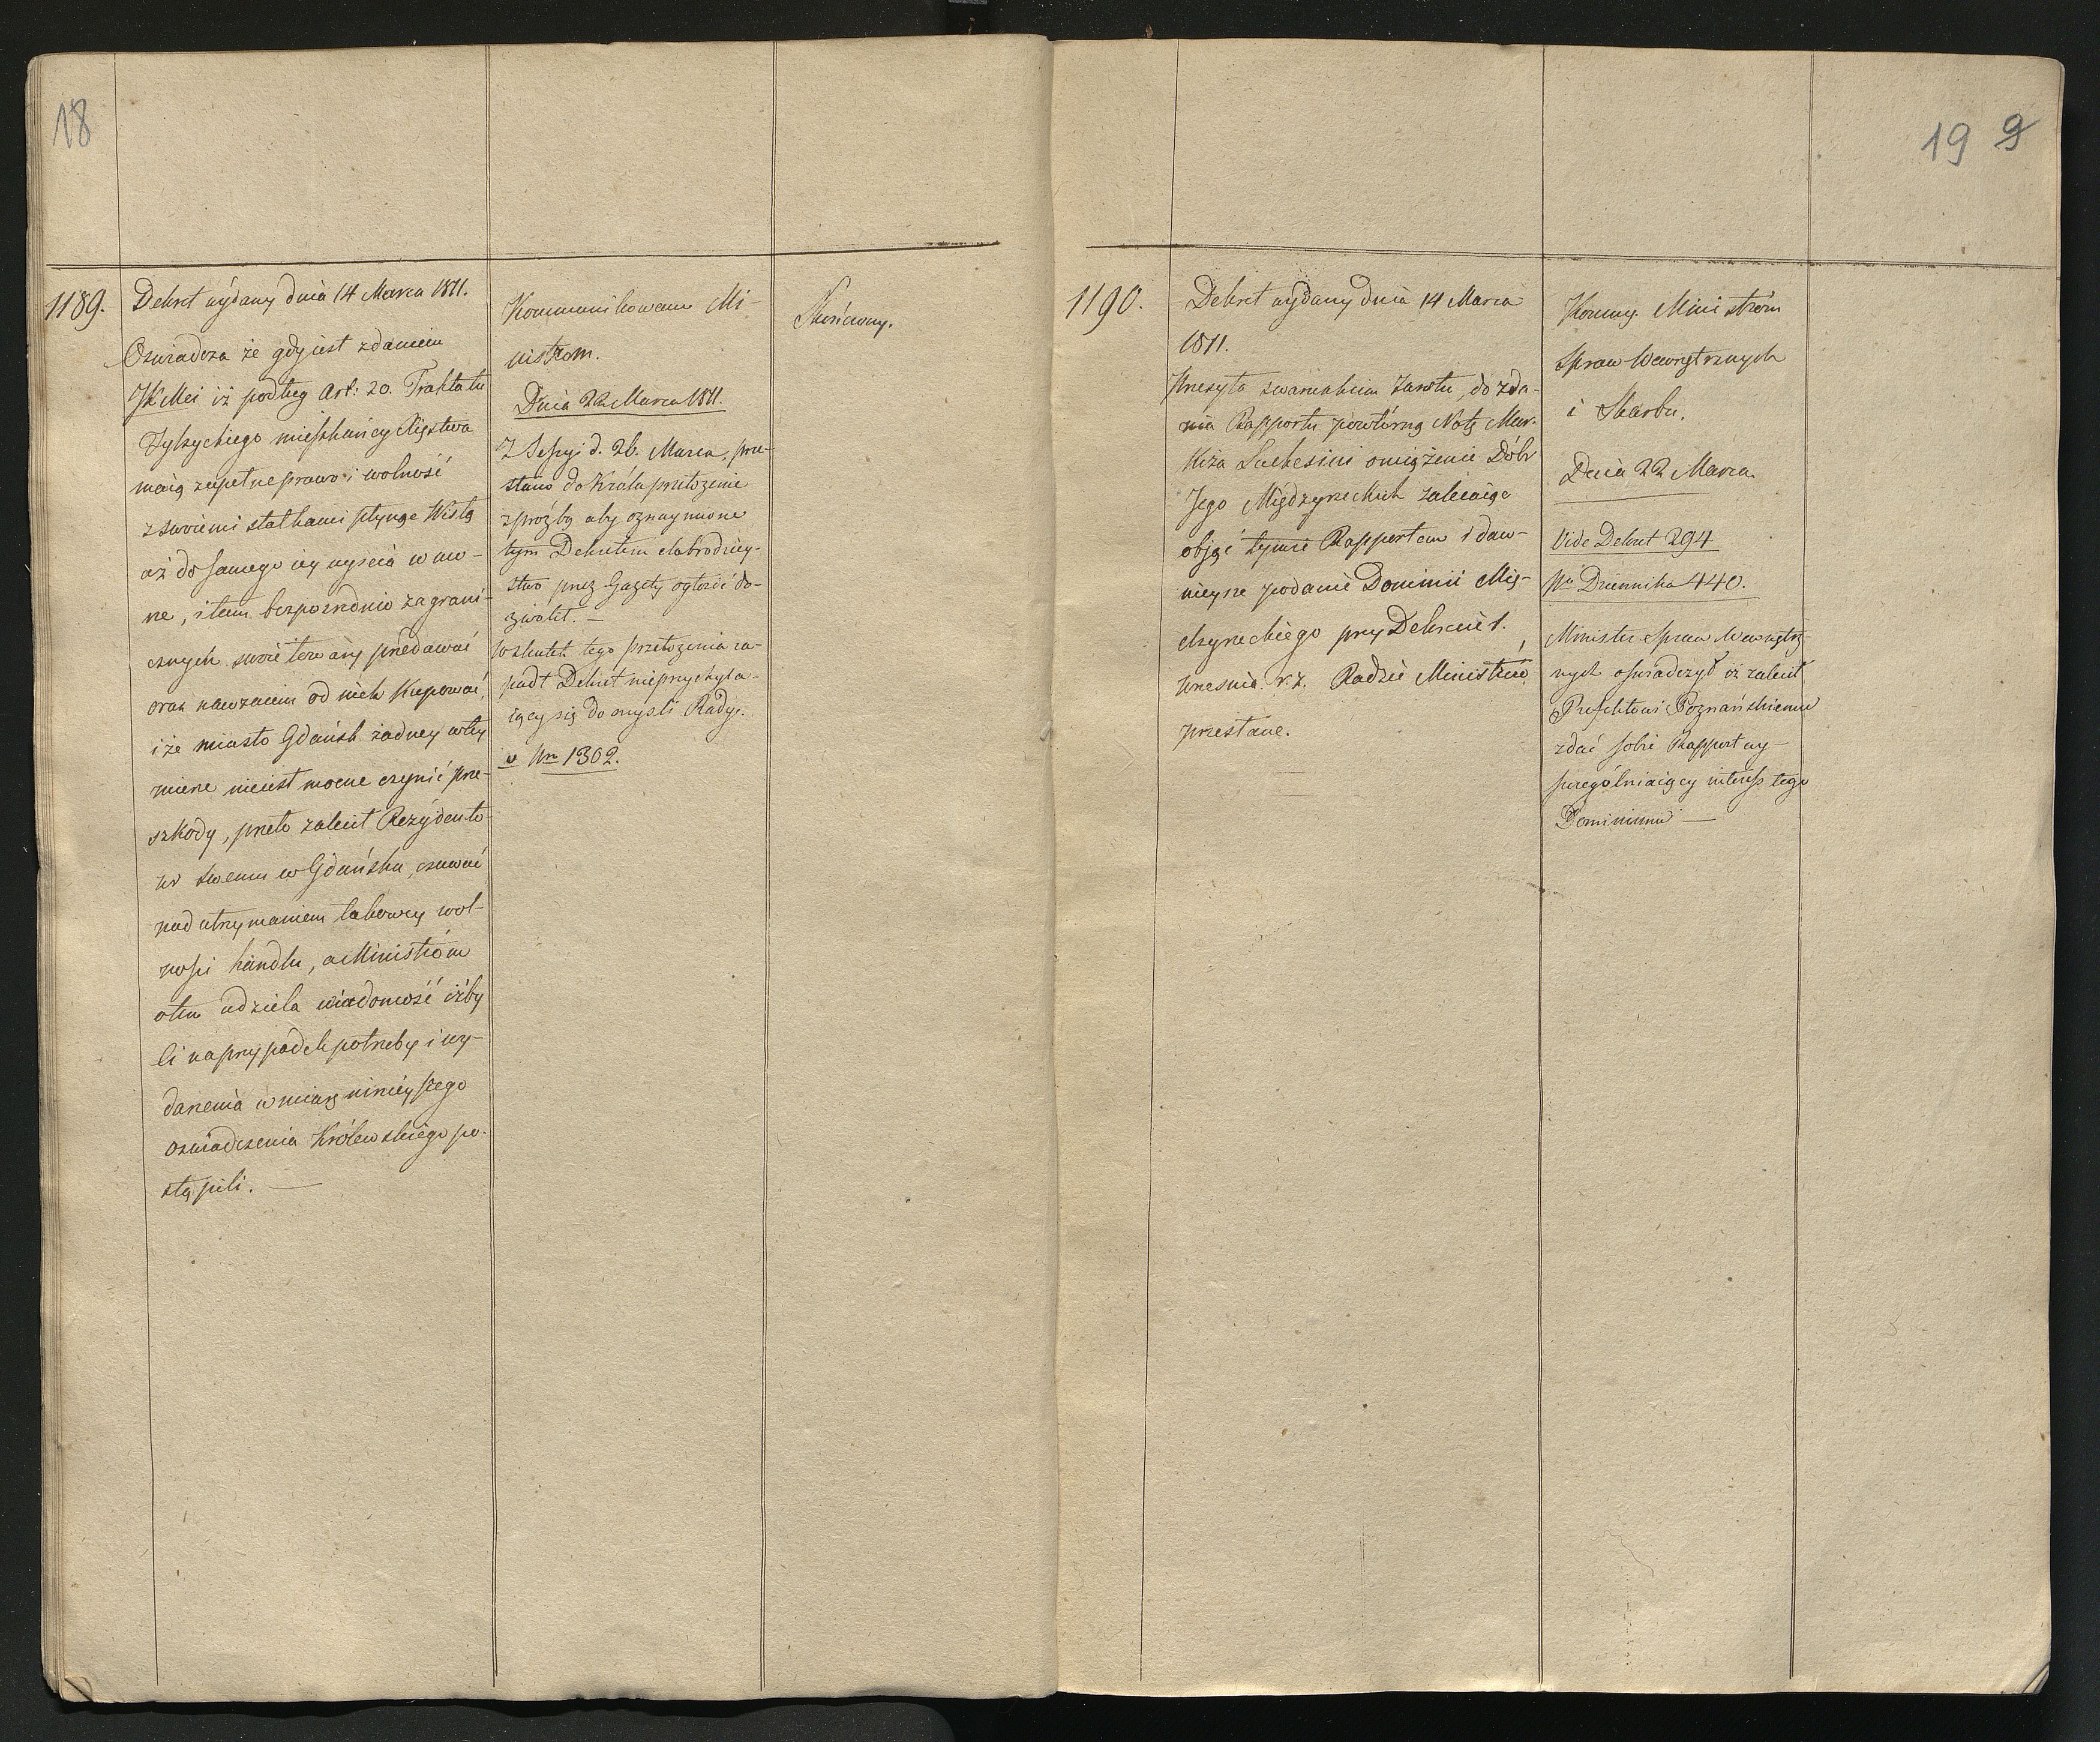 18
1189.
Dekret wydany dnia 14 Marca 1811.
Oswiadcza że gdy iest zdaniem
JKMci iż podług Art: 20. Traktatu
Tylżyckiego mieszkańcy Xięstwa
maią zupełne prawo i wolność
z swoiemi statkami płynąc Wisłą
aż do samego iey uyscia w mo-
rze, i tam bezpośrednio zagrani-
cznych swoie towary przedawać
oraz nawzaiem od nich kupować,
i że miasto Gdańsk żadney w tey
mierze nieiest mocne czynić prze-
szkody, przeto zalecił Rezydento-
wi swemu w Gdańsku, czuwać
nad utrzymaniem takowey wol-
ności handlu, a Ministróm
o tem udziela wiadomość iżby
ci na przypadek potrzeby i wy-
darzenia w miarę ninieyszego
oswiadczenia Królewskiego po-
stąpili. —
Kommunikowano Mi-
nistrom.
Dnia 22 Marca 1811.
Z Sessyi d. 26. Marca, prze-
słano do Króla przełożenie
z prozbą aby oznaymione
tym Dekretem dobrodziey-
stwo przez Gazety ogłosić do-
zwolił. —
W skutek tego przełożenia za-
padł Dekret nieprzychyla-
iący się do mysli Rady.
v Nr 1302.
Skończony.
19 9
1190.
Dekret wydany dnia 14 Marca
1811.
Przesyła zwarunkum zwrotu, do zda-
nia Rapportu powtórną Notę Mar-
kiza Luckesini o uciążenie Dóbr
Jego Międzyrzeckich zalecaiąc
objąć tymże Rapportem i daw-
nieysze podanie Dominii Mię-
dzyrzeckiego przy Dekrecie 1.
Wrzesnia r. z. Radzie Ministrów
przesłane.
Kommuy. Ministróm
Spraw Wewnętrznych
i Skarbu.
Dnia 22 Marca.
Vide Dekret 294
Nr Dziennika 440.
Minister Spraw Wewnętrz-
nych oswiadczył iż zalecił
Prefektowi Poznańskiemu
zdać sobie Rapport wy-
szczególniaiący interess tego
Dominium —